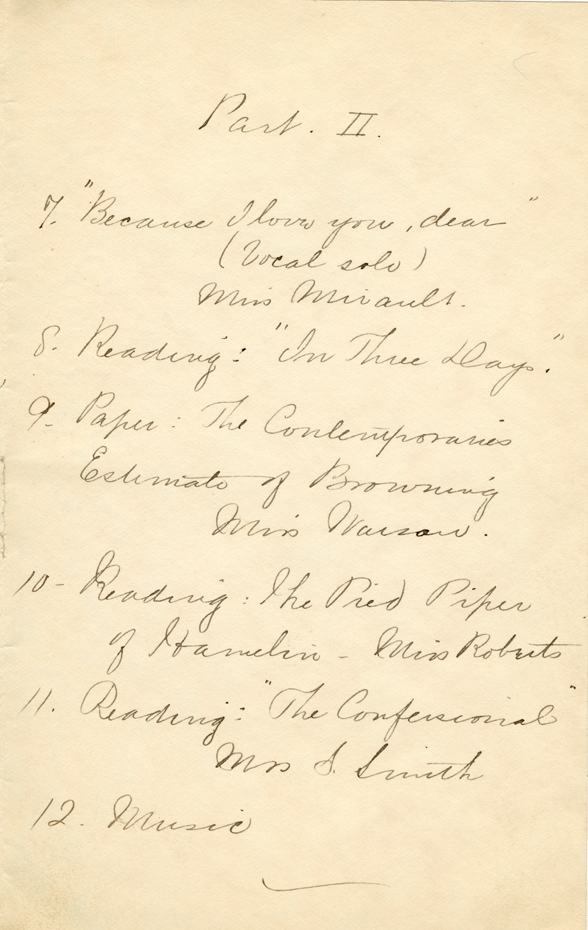 Part. II.
7. "Because I love you, dear"
(Vocal solo)
Miss Mirault.
8. Reading: "In Three Days."
9. Paper: The Contemporaries
Estimate of Browning
Miss
10- Reading: The Pied Piper
of Hamelin - Miss Roberts
11. Reading: "The Confessional"
Mrs S. Smith
12. Music